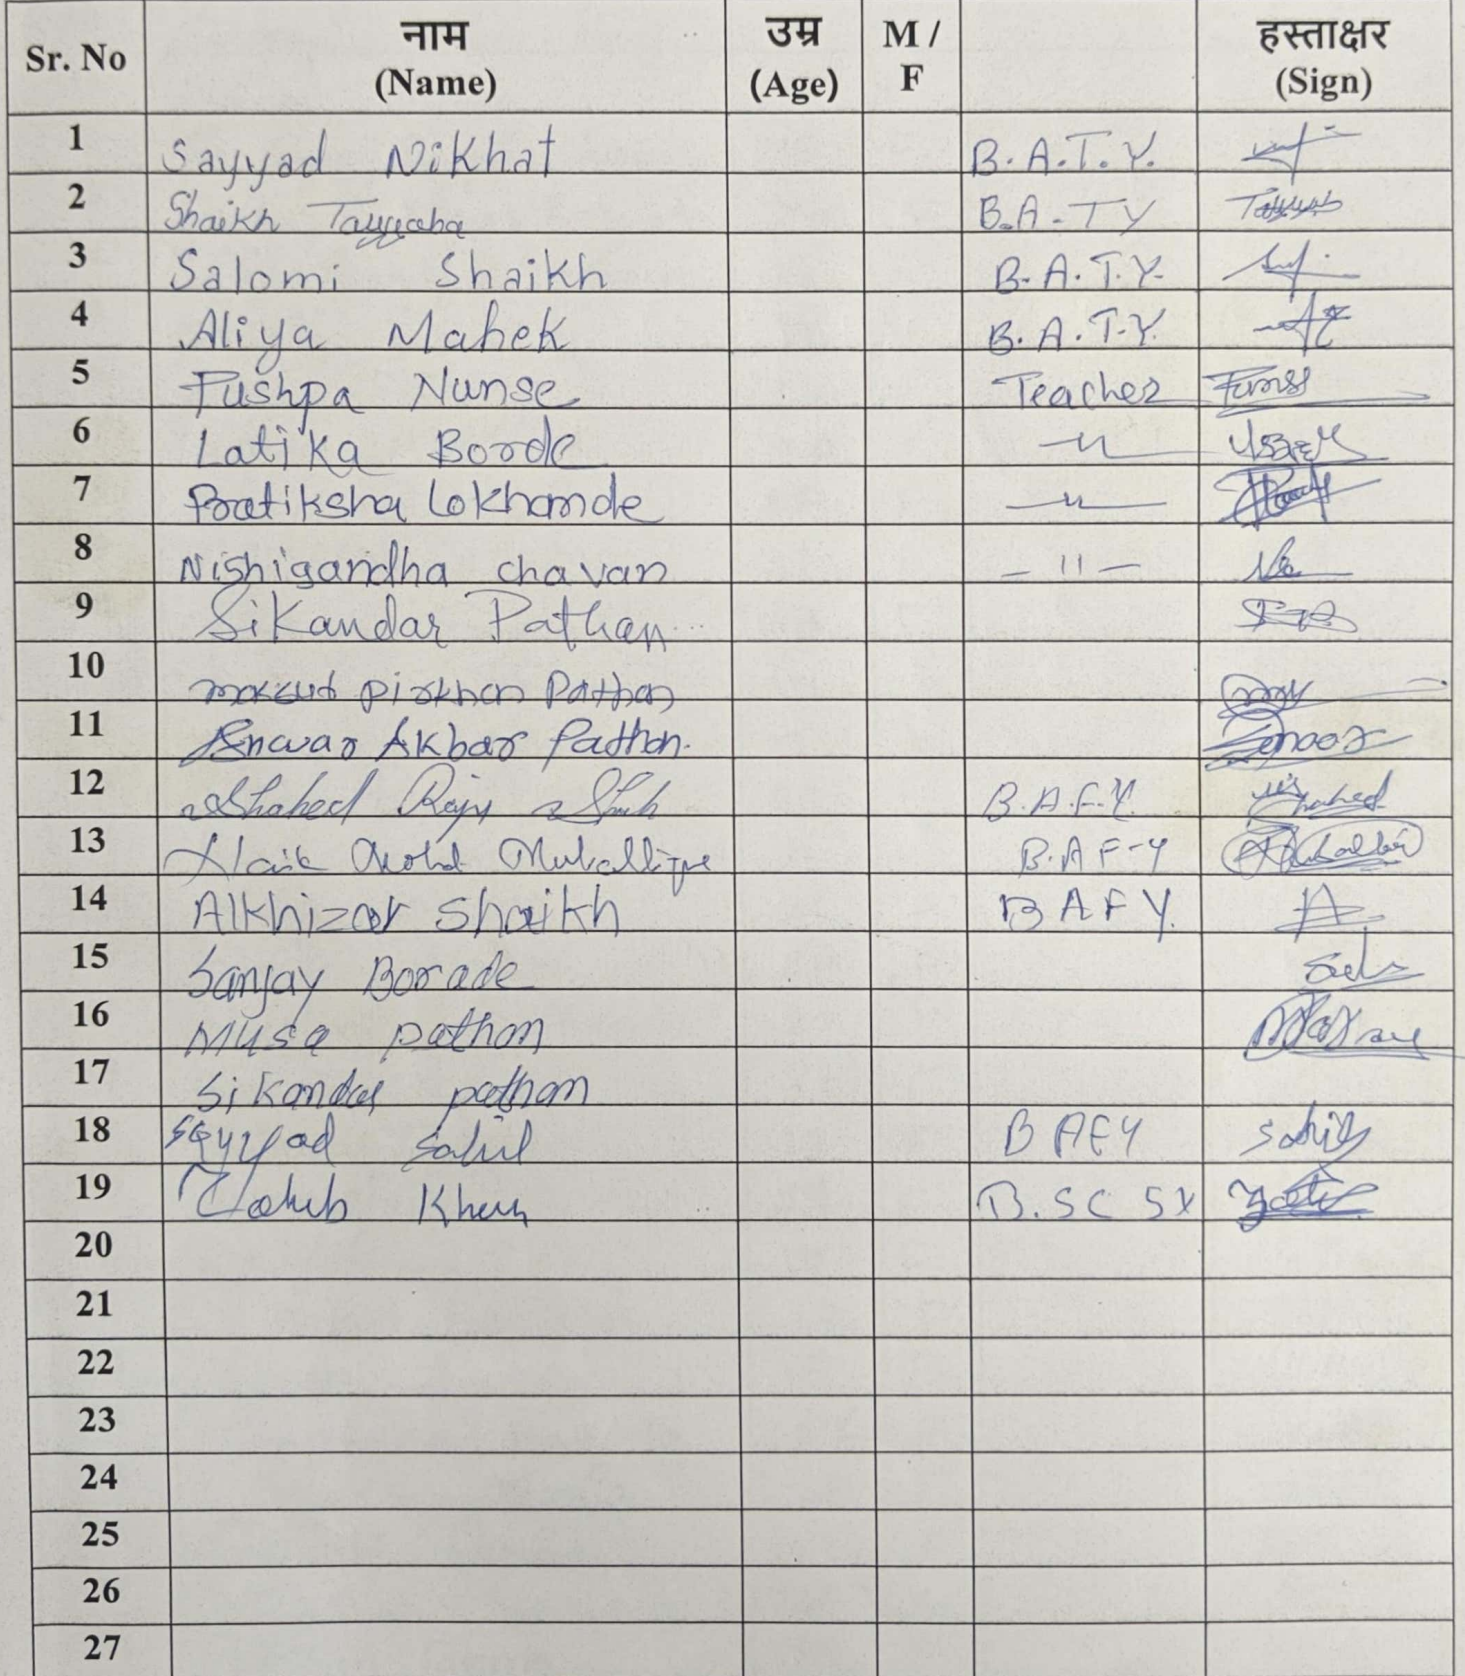 Sr. No नाम (Name) उम्र (Age) M / F हस्ताक्षर (Sign)
1 Sayyad Nikhat B.A.T.Y.
2 Shaikh Tayyaba B.A-TY
3 Salomi Shaikh B.A.T.Y.
4 Aliya Mahek B.A.T.Y.
5 Pushpa Nunse Teacher
6 Latika Borde —"—
7 Pratiksha Lokhande —"—
8 Nishigandha chavan - 11 -
9 Sikandar Pathan
10 pirkhan Pathan
11 Anwar Akbar Pathan.
12 Shahed B.A.F.Y.
13 B.A F-Y
14 Alkhizar Shaikh B A F Y.
15 Sanjay Borade
16 Musa pathan
17 Sikandar pathan
18 Sayyad Sahil B A F Y Sahil
19 Khan B.SC SY
20
21
22
23
24
25
26
27